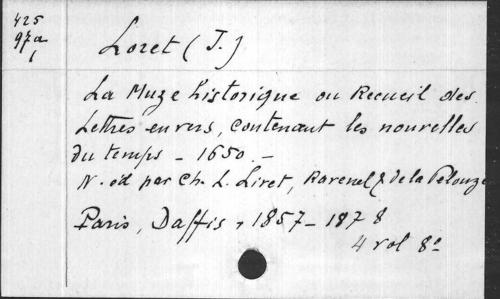 425
97a
1
Loret (J.)
La Muze historique ou Recueil des
Lettres en vers, contenant les nouvelles
du temps - 1650. -
N. éd par Ch. L. Livet, Ravenel & de la Pelouze
Paris, Daffis, 1857-1878
4 vol 8º